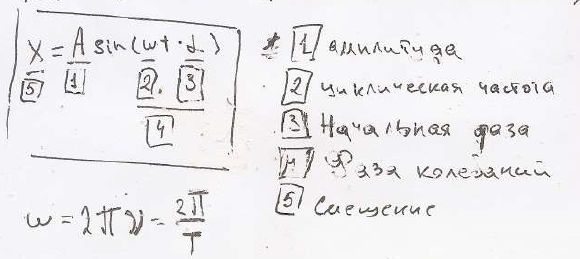 X = A sin(ωt · α)
5 1 2 . 3
4
ω = 2πν = 2π/T
* 1 амплитуда
2 циклическая частота
3 Начальная фаза
4 Фаза колебаний
5 Смещение